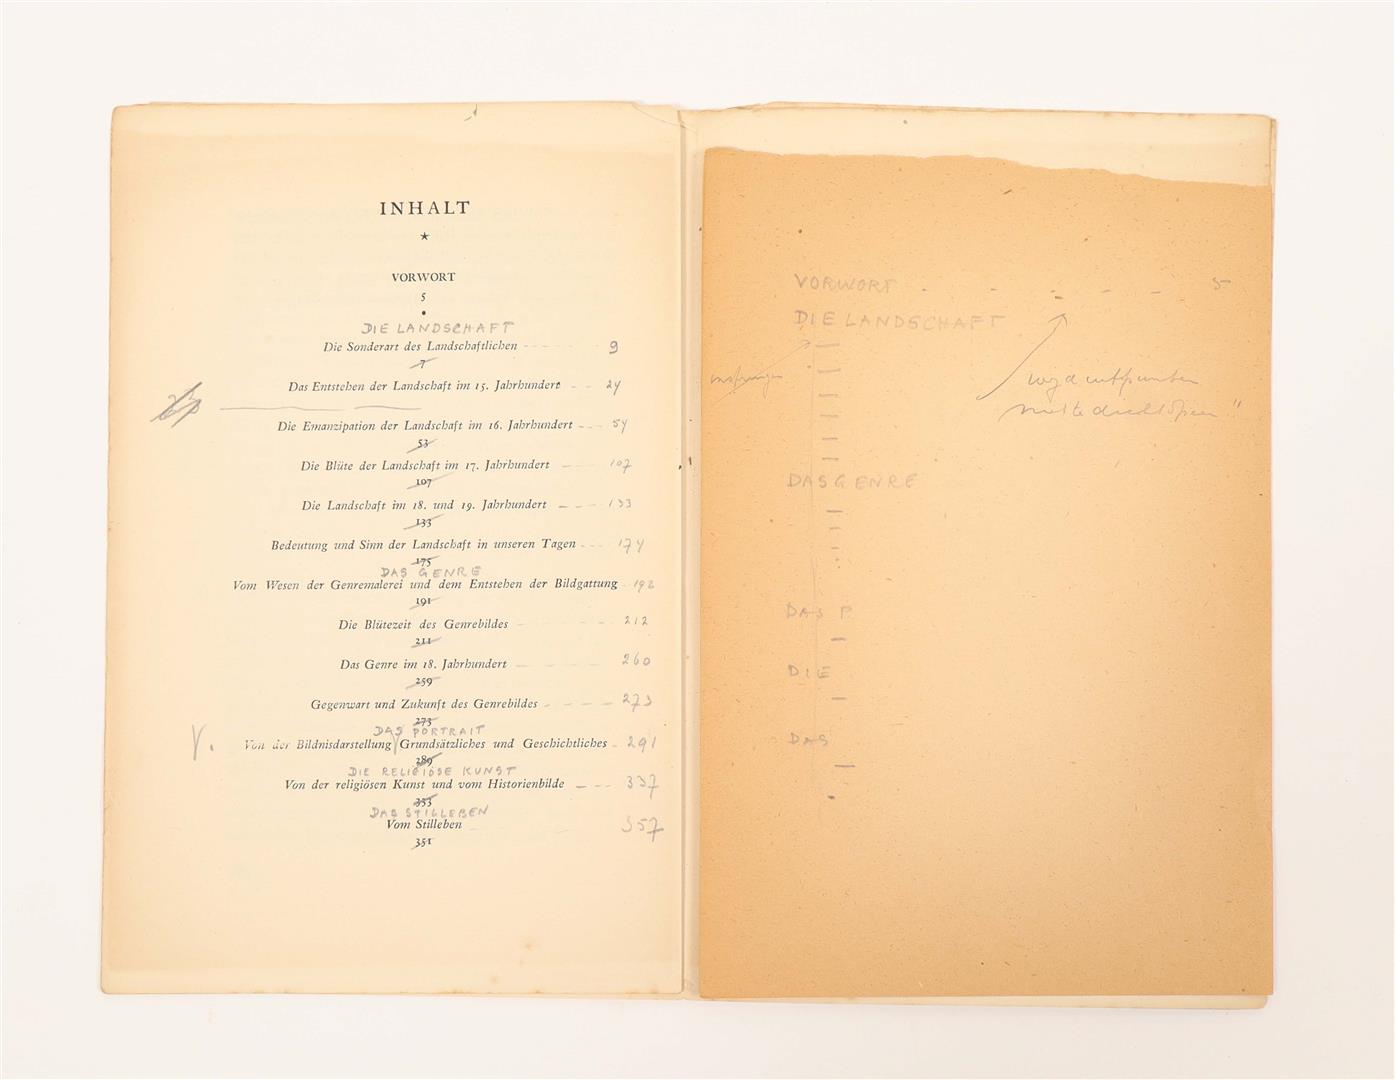 INHALT
*
VORWORT
5
DIE LANDSCHAFT
Die Sonderart des Landschaftlichen - - - - 9
7
Das Entstehen der Landschaft im 15. Jahrhundert - - 24
23
Die Emanzipation der Landschaft im 16. Jahrhundert - - - 54
53
Die Blüte der Landschaft im 17. Jahrhundert - - - 107
107
Die Landschaft im 18. und 19. Jahrhundert - - - - 133
133
Bedeutung und Sinn der Landschaft in unseren Tagen - - - 174
175
DAS GENRE
Vom Wesen der Genremalerei und dem Entstehen der Bildgattung - 192
191
Die Blütezeit des Genrebildes - - - - 212
211
Das Genre im 18. Jahrhundert - - - - 260
259
Gegenwart und Zukunft des Genrebildes - - - - 273
273
DAS PORTRAIT
V. Von der Bildnisdarstellung Grundsätzliches und Geschichtliches - 291
289
DIE RELIGIÖSE KUNST
Von der religiösen Kunst und vom Historienbilde - - - 337
333
DAS STILLEBEN
Vom Stilleben 357
351
VORWORT - - - - - 5
DIE LANDSCHAFT
DAS GENRE
DAS P
DIE
DAS